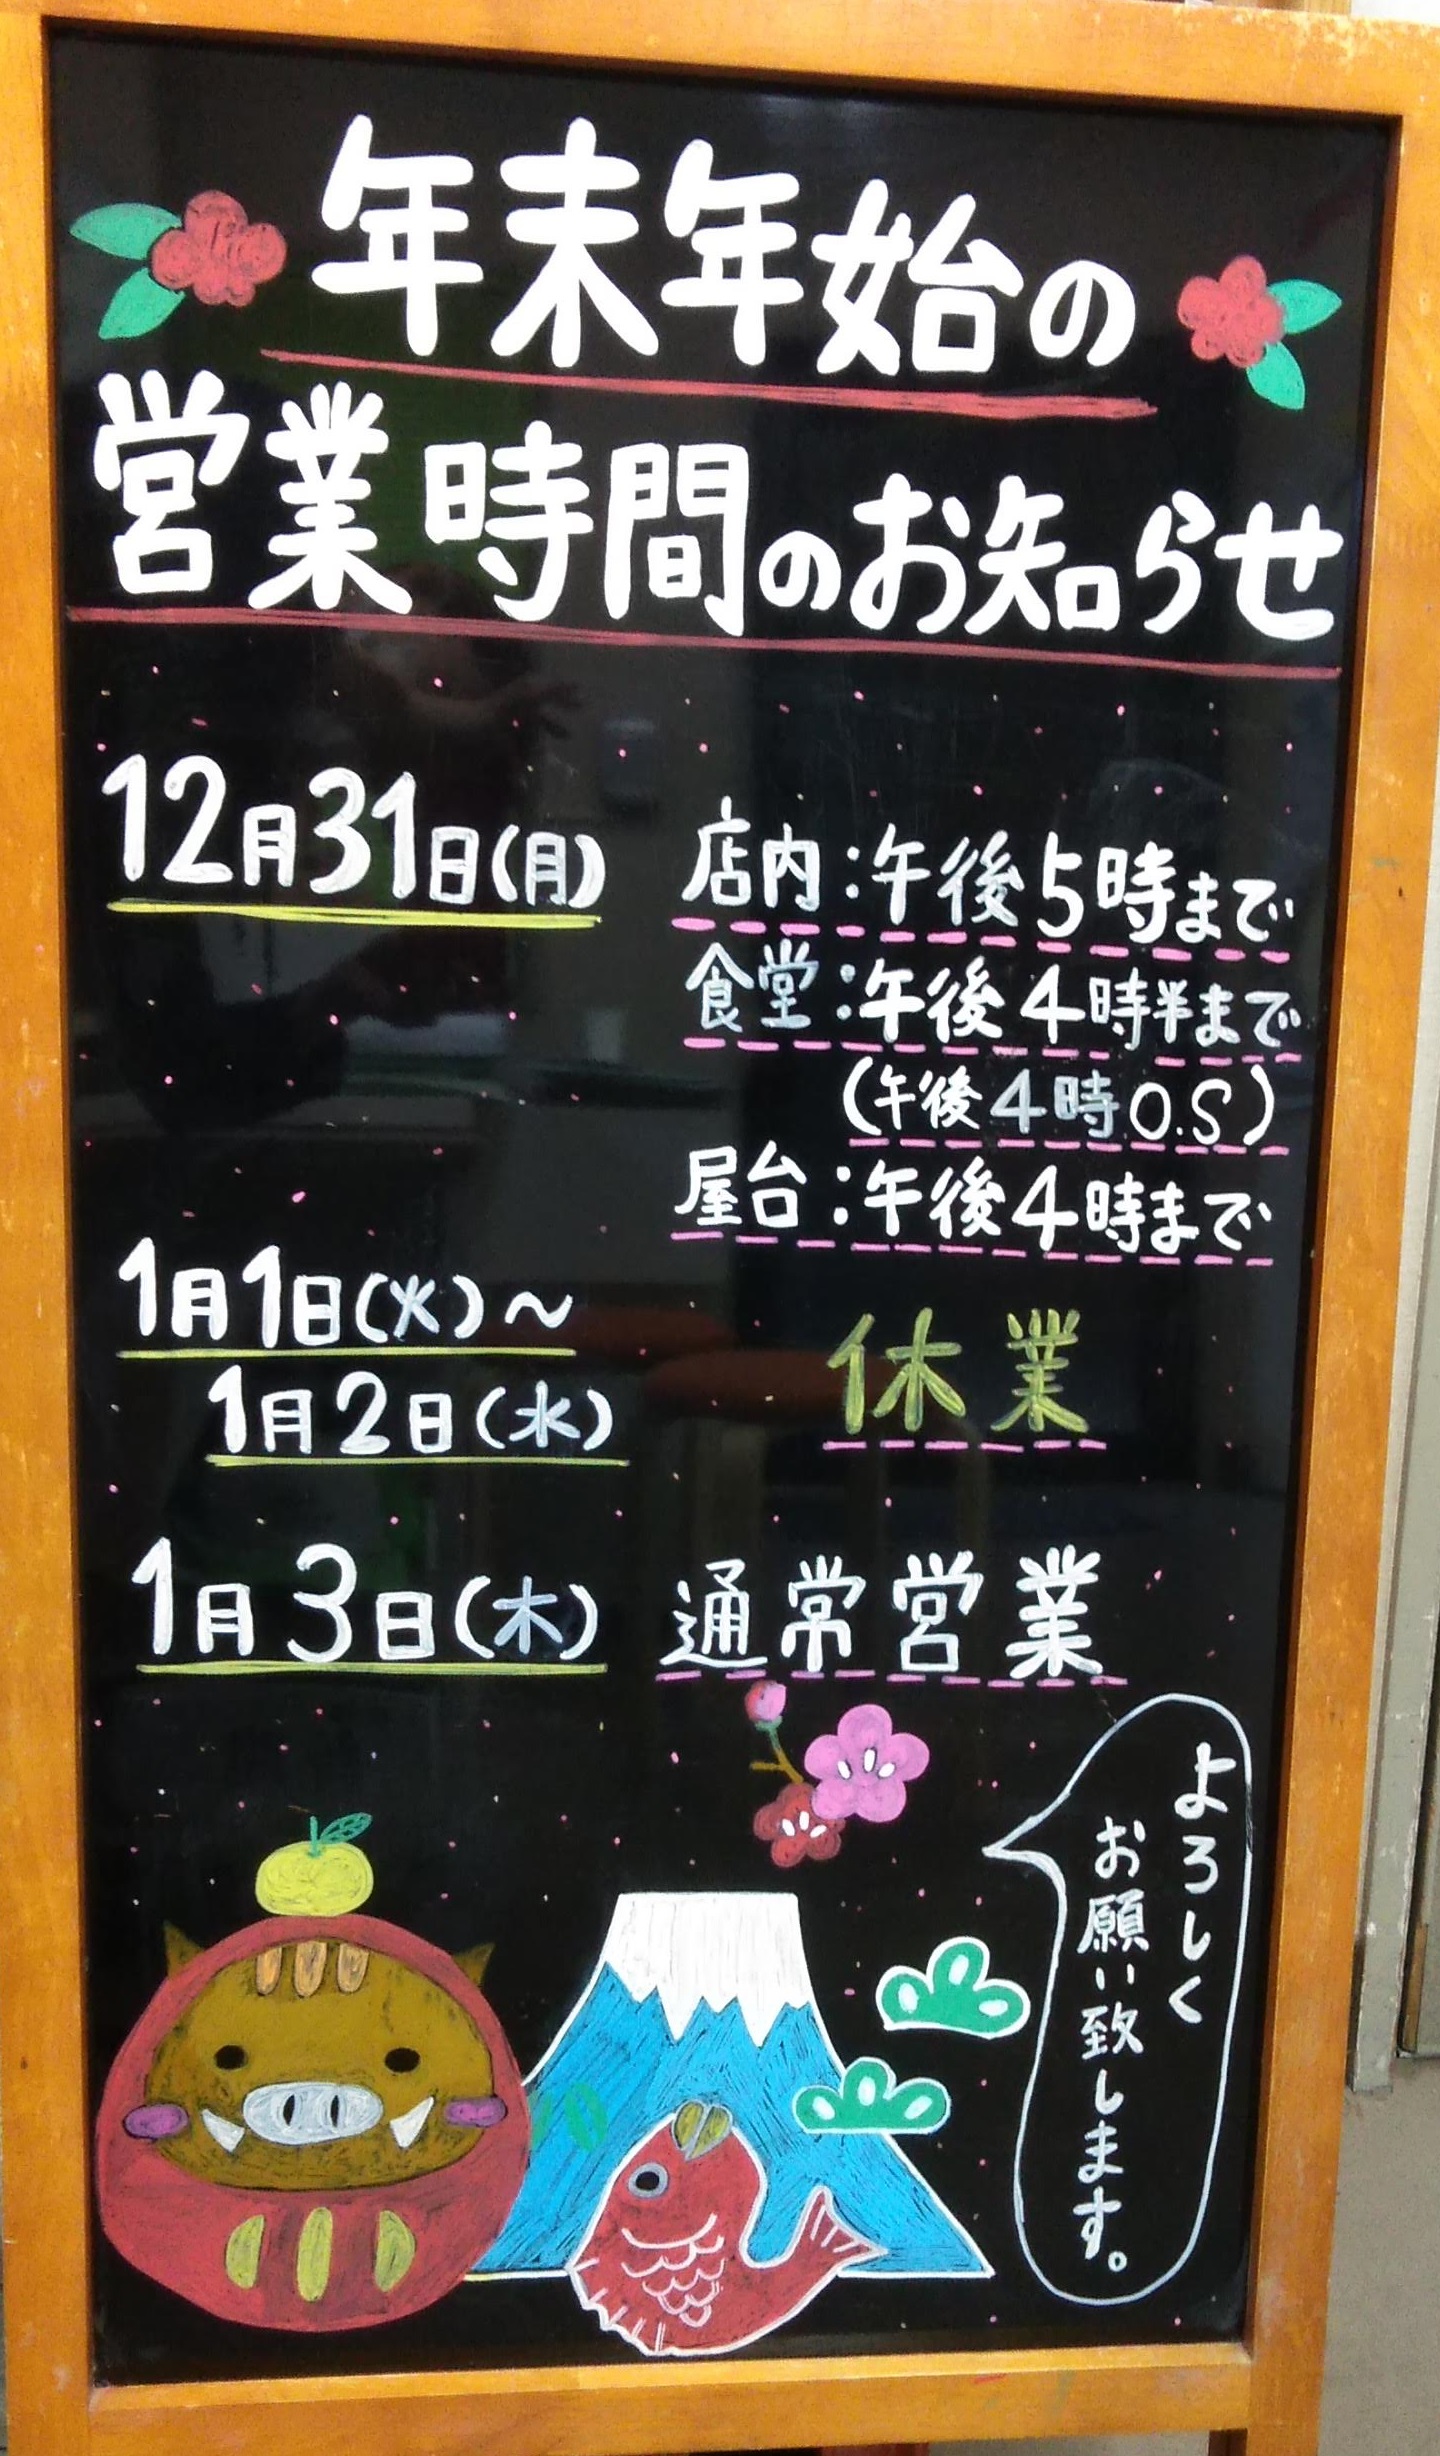 年末年始の
営業時間のお知らせ
12月31日(月) 店内:午後5時まで
食堂:午後4時半まで
(午後4時O.S)
屋台:午後4時まで
1月1日(火)～
1月2日(水) 休業
1月3日(木) 通常営業
よろしく
お願い致します。